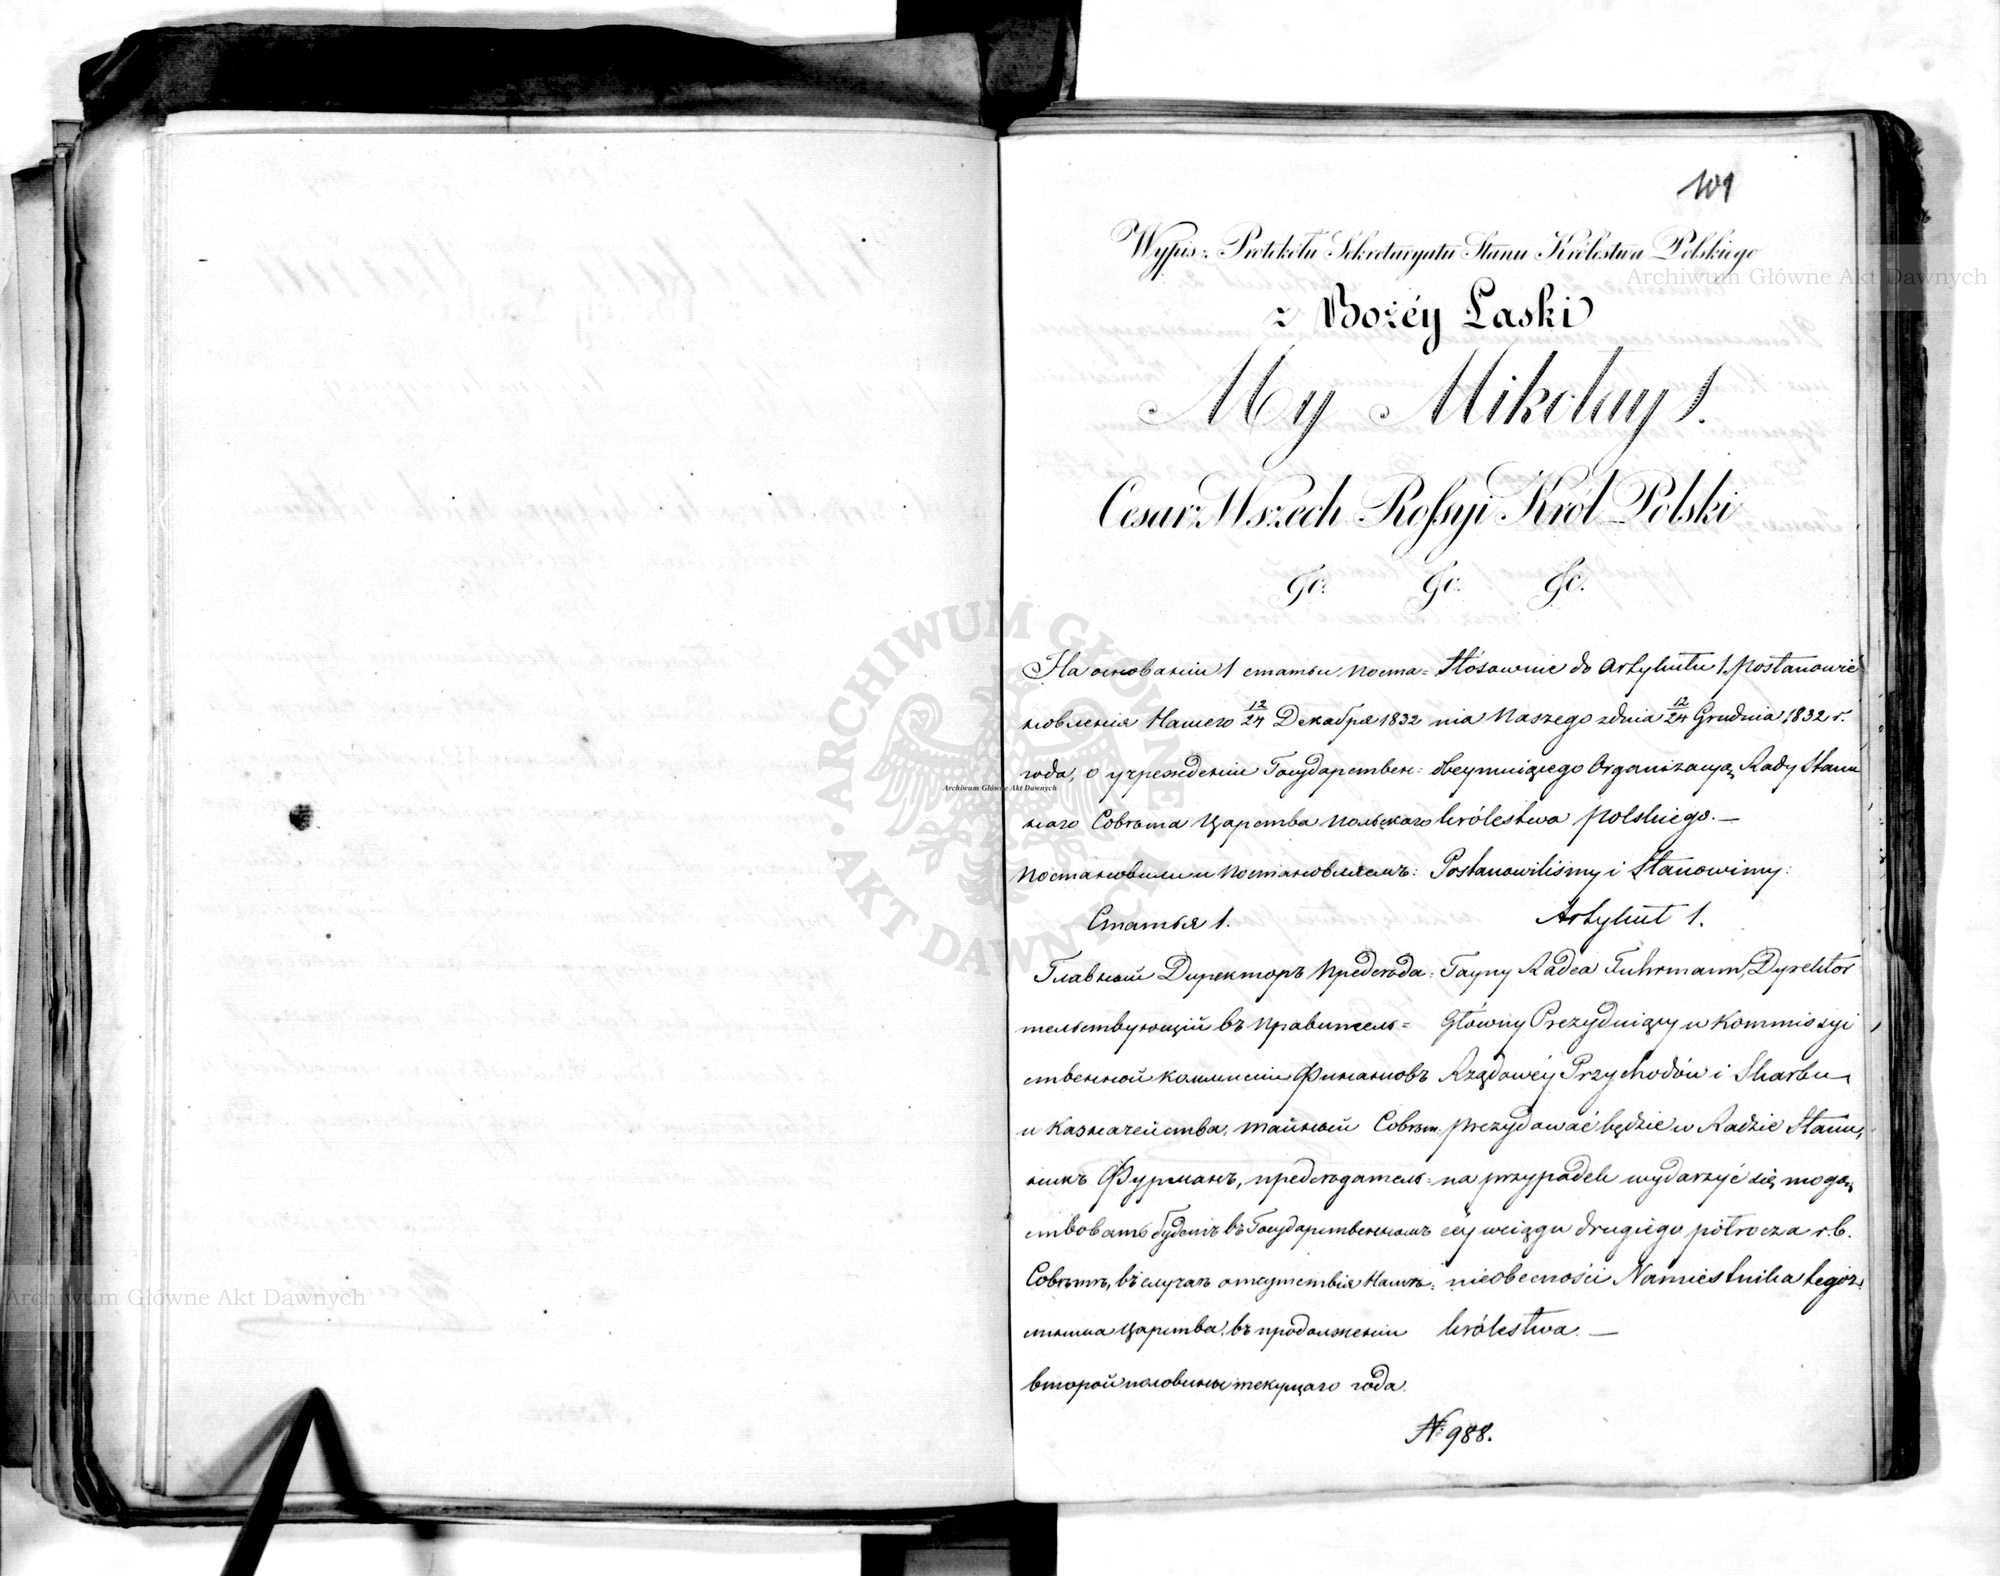 101
Wypis z Protokółu Sekretaryatu Stanu Królestwa Polskiego
z Bożéy Łaski
My Mikołay I.
Cesarz Wszech Rossyi Król Polski
&c. &c. &c.
На основаніи 1 статьи поста=
новленія Нашего 12/24 Декабря 1832
года, о учрежденіи Государствен=
наго Совѣта Царства Польскаго
Постановили и Постановляемъ:
Статья 1.
Главный Директоръ Предсѣда=
тельствующій въ Правитель=
ственной Коммисіи Финансовъ
и Казначейства, Тайный Совѣт=
никъ Фурманъ, предсѣдатель=
ствовать будетъ въ Государственномъ
Совѣтѣ, въ случаѣ отсутствія Намѣ=
стника Царства, въ продолженіи
второй половины текущаго года.
Stósownie do Artykułu 1. Postanowie
nia Naszego z dnia 12/24 Grudnia 1832 r.
obeymuiącego Organizacyą Rady Stanu
Królestwa Polskiego. —
Postanowiliśmy i Stanowimy:
Artykuł 1.
Tayny Radca Fuhrmann, Dyrektor
Główny Prezyduiący w Kommissyi
Rządowéy Przychodów i Skarbu,
prezydować będzie w Radzie Stanu,
na przypadek wydarzyć się mogą,
céy w ciągu drugiego półrocza r. b.
nieobecności Namiestnika tegoż,
Królestwa. —
№ 988.
Archiwum Główne Akt Dawnych
Archiwum Główne Akt Dawnych
Archiwum Główne Akt Dawnych
ARCHIWUM GŁÓWNE AKT DAWNYCH